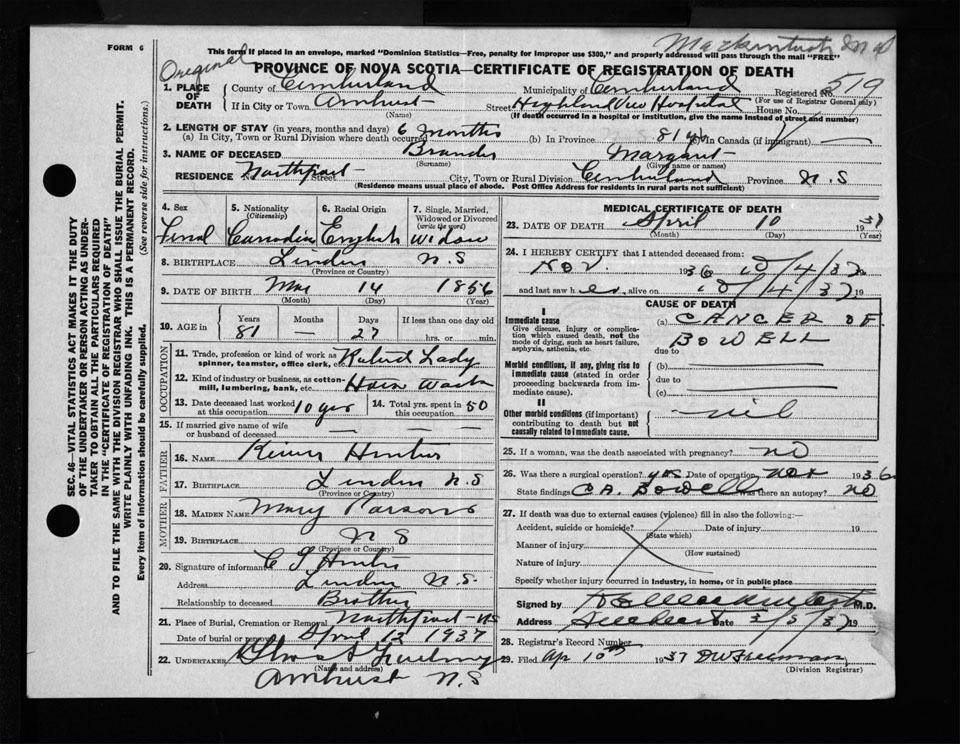 FORM 6
This form if placed in an envelope, marked "Dominion Statistics—Free, penalty for improper use $300," and properly addressed will pass through the mail "FREE"
Original
PROVINCE OF NOVA SCOTIA—CERTIFICATE OF REGISTRATION OF DEATH
1. PLACE OF DEATH
County of Cumberland Municipality of Cumberland Registered No. 519
(For use of Registrar General only)
If in City or Town Amherst Street Highland View Hospital House No.
(Name) (If death occurred in a hospital or institution, give the name instead of street and number)
2. LENGTH OF STAY (in years, months and days) 6 months
(a) In City, Town or Rural Division where death occurred (b) In Province 81 (c) In Canada (if immigrant)
3. NAME OF DECEASED Margaret
(Surname) (Given name or names)
RESIDENCE Northport Street City, Town or Rural Division Cumberland Province N.S
(Residence means usual place of abode. Post Office Address for residents in rural parts not sufficient)
SEC. 46—VITAL STATISTICS ACT MAKES IT THE DUTY
OF THE UNDERTAKER OR PERSON ACTING AS UNDER-
TAKER TO OBTAIN ALL THE PARTICULARS REQUIRED
IN THE "CERTIFICATE OF REGISTRATION OF DEATH"
AND TO FILE THE SAME WITH THE DIVISION REGISTRAR WHO SHALL ISSUE THE BURIAL PERMIT.
WRITE PLAINLY WITH UNFADING INK. THIS IS A PERMANENT RECORD.
Every item of information should be carefully supplied. (See reverse side for instructions.)
4. Sex 5. Nationality (Citizenship) 6. Racial Origin 7. Single, Married, Widowed or Divorced (write the word)
Canadian English Widow
8. BIRTHPLACE Linden N.S
(Province or Country)
9. DATE OF BIRTH Mar 14 1856
(Month) (Day) (Year)
10. AGE in Years Months Days If less than one day old
81 — 27 hrs. or min.
OCCUPATION
11. Trade, profession or kind of work as spinner, teamster, office clerk, etc. Retired Lady
12. Kind of industry or business, as cotton-mill, lumbering, bank, etc. House Work
13. Date deceased last worked at this occupation 10 yrs 14. Total yrs. spent in this occupation 50
15. If married give name of wife or husband of deceased — — —
FATHER
16. NAME Hunter
17. BIRTHPLACE Linden N.S
(Province or Country)
MOTHER
18. MAIDEN NAME Mary Parsons
19. BIRTHPLACE N S
(Province or Country)
20. Signature of informant C G Hunter
Address Linden N.S.
Relationship to deceased Brother
21. Place of Burial, Cremation or Removal Northport—NS
Date of burial or removal April 12 1937
22. UNDERTAKER
(Name and address)
Amherst N.S
MEDICAL CERTIFICATE OF DEATH
23. DATE OF DEATH April 10 1937
(Month) (Day) (Year)
24. I HEREBY CERTIFY that I attended deceased from:
Nov. 1936 10/4/37
and last saw her alive on 10/4/37 19
CAUSE OF DEATH
I
Immediate cause (a) CANCER OF
Give disease, injury or complication which caused death, not the mode of dying, such as heart failure, asphyxia, asthenia, etc. BOWELL
due to
Morbid conditions, if any, giving rise to immediate cause (stated in order proceeding backwards from immediate cause). (b)
due to
(c)
II
Other morbid conditions (if important) contributing to death but not causally related to immediate cause. nil
25. If a woman, was the death associated with pregnancy? no
26. Was there a surgical operation? yes Date of operation Nov 1936
State findings CA. Bowell Was there an autopsy? NO
27. If death was due to external causes (violence) fill in also the following:—
Accident, suicide or homicide? Date of injury 19
(State which)
Manner of injury
(How sustained)
Nature of injury
Specify whether injury occurred in industry, in home, or in public place
Signed by M.D.
Address Amherst Date 3/5/37 19
28. Registrar's Record Number
29. Filed Ap 10th 1937 DW Freeman
(Division Registrar)